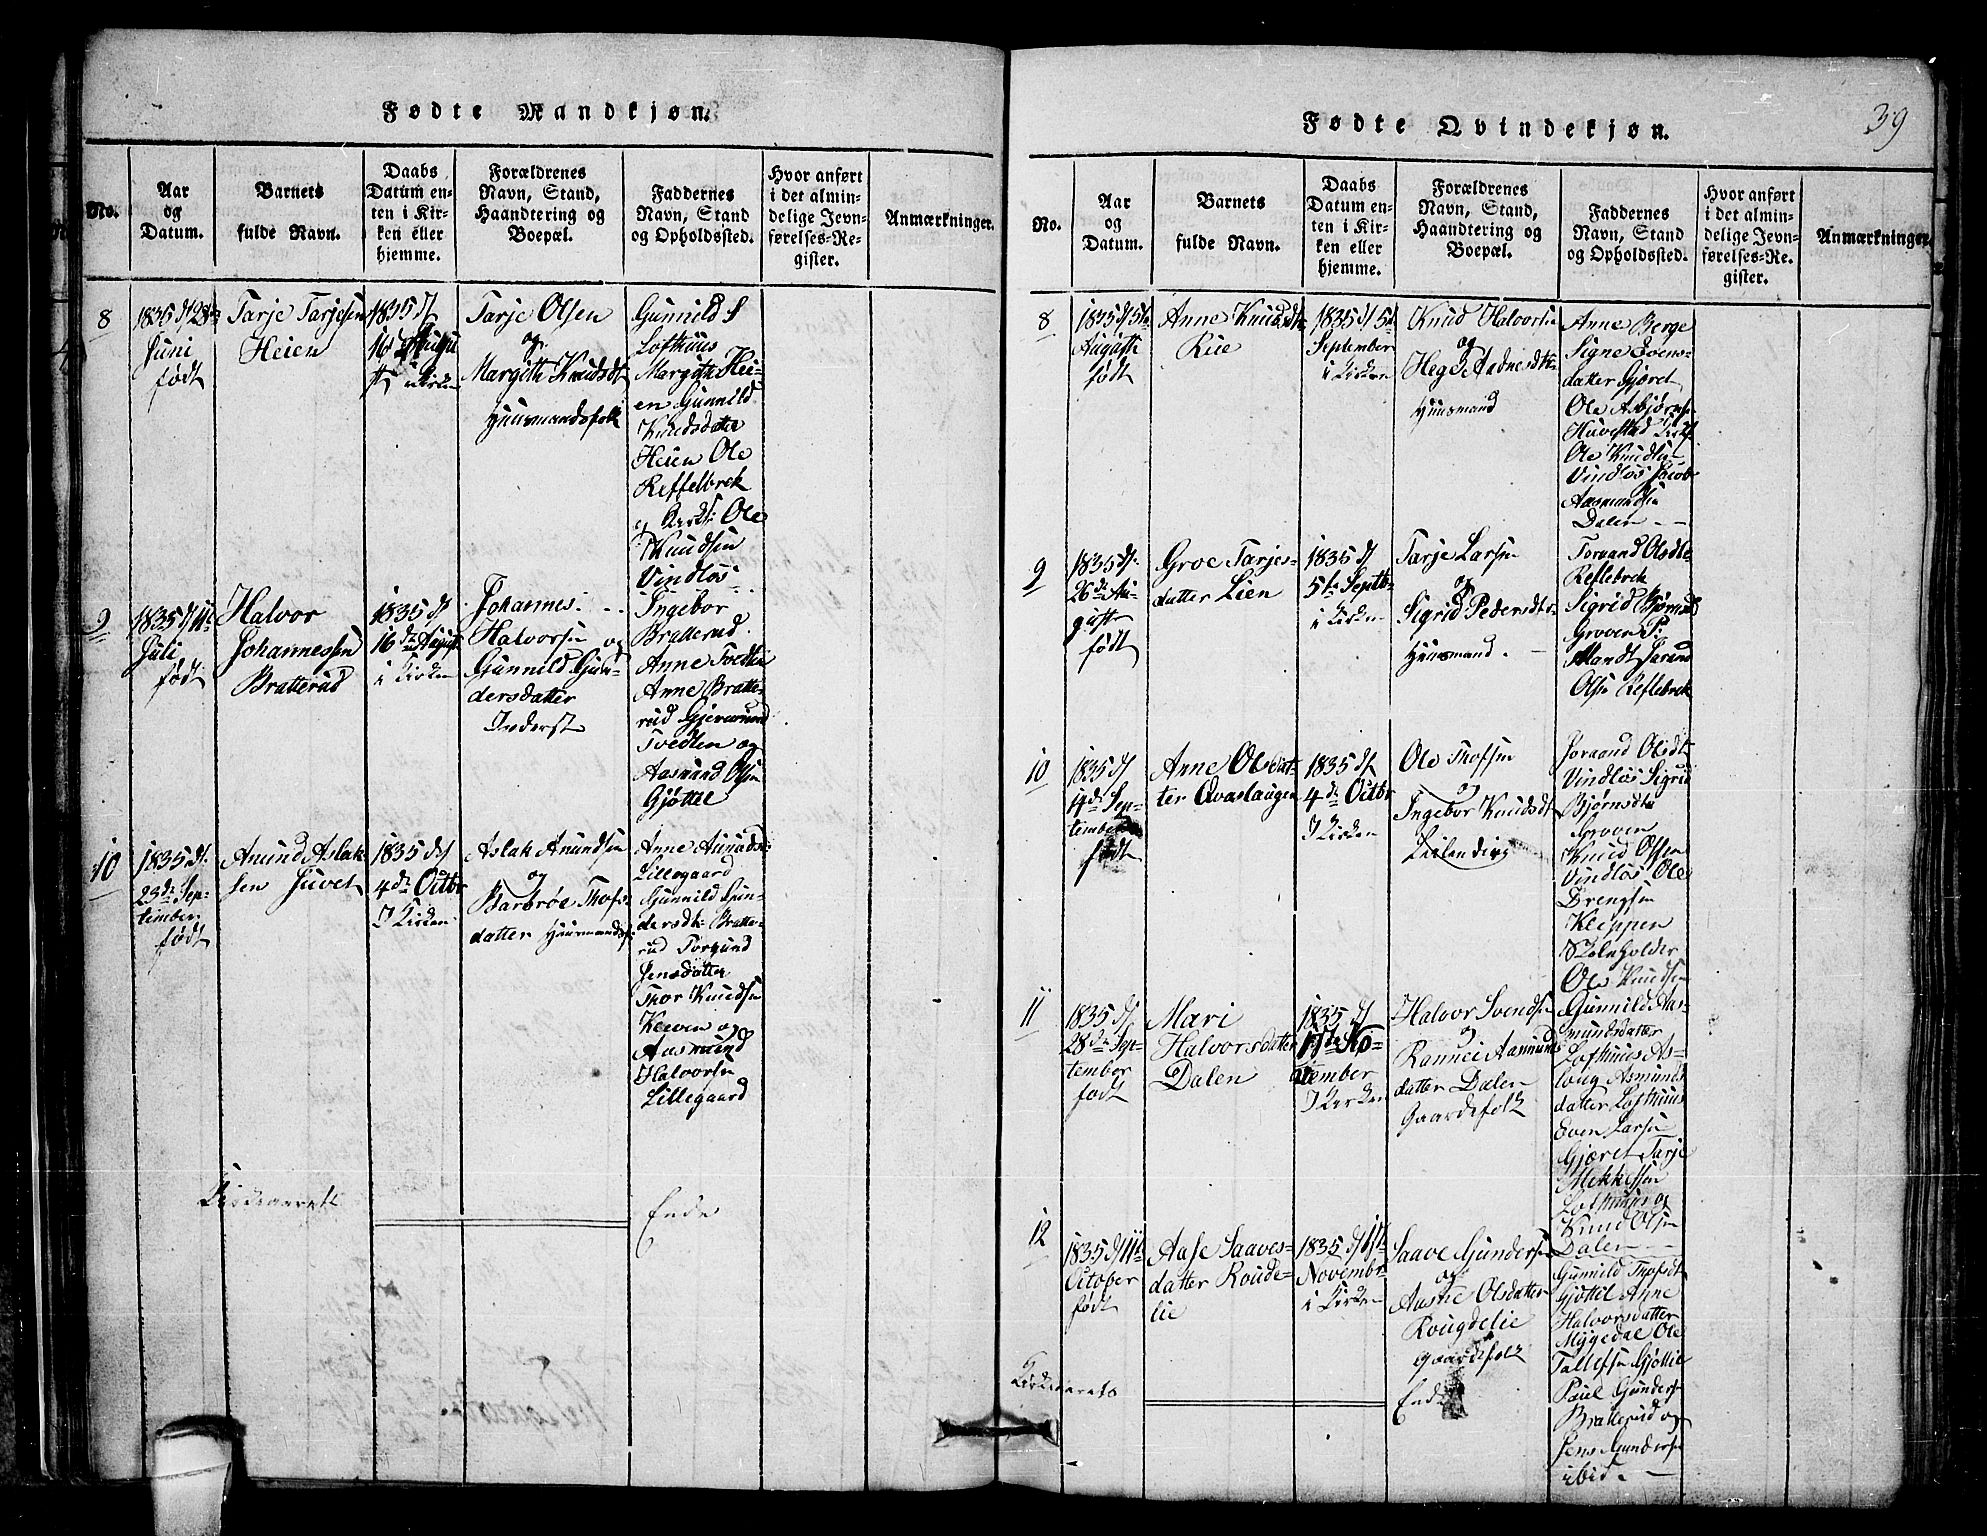 Fødte Mandkjøn.
No.
Aar
og
Datum.
Barnets
fulde Navn.
Daabs
Datum en-
ten i Kir-
ken eller
hjemme.
Forældrenes
Navn, Stand,
Haandtering og
Boepæl.
Faddernes
Navn, Stand
og Opholdssted.
Hvor anført
i det almin-
delige Jevn-
førelses-Re-
gister.
Anmærkninger.
8
1835 d 28de
Juni
født
Tarje Tarjesen
Heien
1835 d
16de August
i Kirken
Tarje Olsen
og
Margith Knudsdt
Huusmandsfolk
Gunnild S
Lofthuus
Margith Hei-
en Gunnild
Knudsdatter
Heien Ole
Reffelbrek
og Kirks: Ole
Knudsen
Vindlös
9
1835 d 11te
Juli
født
Halvor
Johannessen
Bratterud
1835 d
16de August
i Kirken
Johannes
Halvorsen og
Gunnild Gun-
dersdatter
Inderst
Ingebor
Bratterud
Anne Tvedten
Anne Bratte-
rud Gjermund
Tvedten og
Aasmund Olsen
Gjöttil
10
1835 d
23de Sep-
tember
født
Anund Aslak
sen Juvet
1835 d
4de Octbr
I Kirken
Aslak Anundsen
og
Barbroe Thofs-
datter Huusmandsf
Anne Anunds-
Lillegaard
Gunnild Gun-
dersdt Bratte-
rud Torgund
Jensdatter
Thor Knudsen
Kleven og
Aasmund
Halvorsen
Lillegaard
Kirkeaarets
Ende
Fødte Qvindekjøn.
39
No.
Aar
og
Datum.
Barnets
fulde Navn.
Daabs
Datum en-
ten i Kir-
ken eller
hjemme.
Forældrenes
Navn, Stand,
Haandtering og
Boepæl.
Faddernes
Navn, Stand
og Opholdssted.
Hvor anført
i det almin-
delige Jevn-
førelses-Re-
gister.
Anmærkninger.
8
1835 d 5te
Augusti
født
Anne Knudsdt
Rue
1835 d 5te
September
i Kirken
Knud Halvorsen
og
Hege Aadnesdt
Huusmand
Anne Berge
Signe Evens-
datter Gjøret
Ole Asbjørns-
Huvestad Kirks
Ole Knudsen
Vindlös Jacob
Aasmundsen
Dalen
9
1835 d
26de Au-
gusti
født
Groe Tarjes-
datter Lien
1835 d
5te Septb
i Kirken
Tarje Larsen
og
Sigrid Pedersdtr
Huusmand.
Toraand Olsdtr
Reflebrek
Sigrid Bjørnsd
Groven P:
Mandt
Olsen Reflebrek
10
1835 d
14de Sep-
tember
født
Anne Olsdat-
ter Qvaslaugen
1835 d
4de Octbr
I Kirken
Ole Thofsen
og
Ingebor Knudsdt
Leilending
Joraand Olsdt
Vindlös Sigrid
Bjørnsdtr
Groven
Knud Olsen
Vindlös Ole
Drengsen
Kleppen
Skoleholder
Ole Knudsen
11
1835 d
28de Sep-
tember
født
Mari
Halvorsdatter
Dalen
1835 d
I Kirken
Halvor Svendsen
og
Rannei Aasmunds
datter Dalen
Gaardefolk
Gunnild Aas-
mundsdatter
Lofthuus As-
loug Asmunds
datter Lofthuus
Even Larsen
Gjæret Tarje
Mikkelsen
Lofthuus og
Knud Olsen
Dalen
12
1835 d 11te
October
født
Aase Saaves-
datter Roude-
lie
1835 d 1ste
Novembr
i Kirken
Saave Gundersen
og
Aasne Olsdatter
Rougdelie
Gaardefolk
Gunnild Thofsdt
Gjöttil Anne
Halvorsdatter
Mygedal Ole
Tallefsen Gjöttil
Paul Gunders
Bratterud og
Jens Gundersen
ibid.
Kirkeaarets
Ende